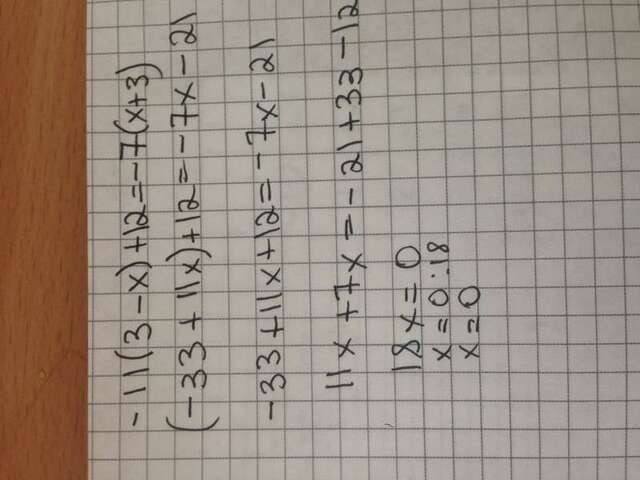 -11(3-x)+12=-7(x+3)
(-33+11x)+12=-7x-21
-33+11x+12=-7x-21
11x+7x=-21+33-12
18x=0
x=0:18
x=0